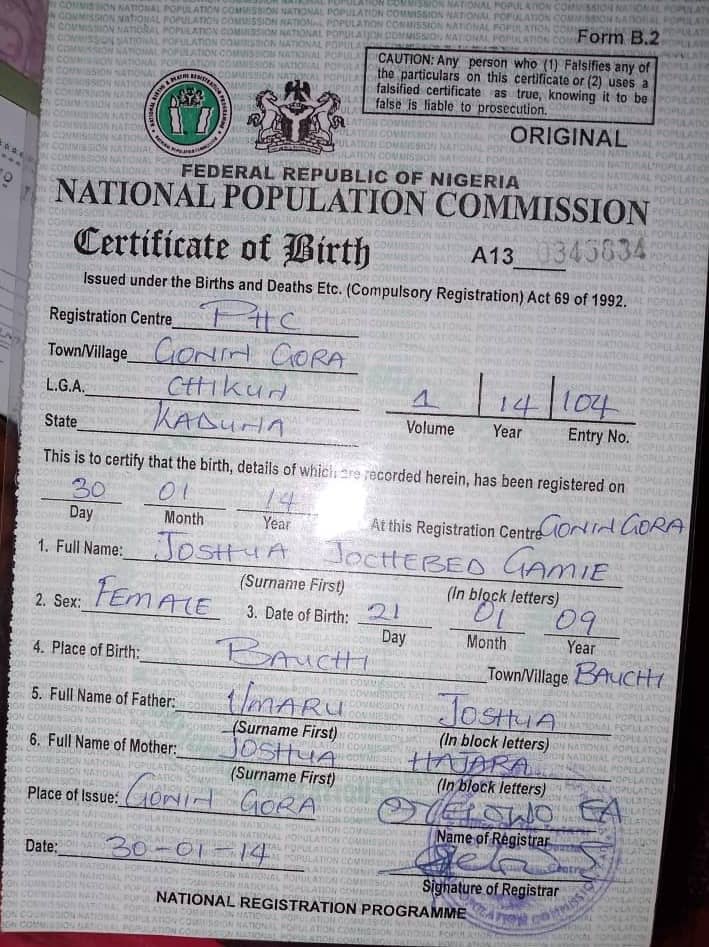 Form B.2
CAUTION: Any person who (1) Falsifies any of
the particulars on this certificate or (2) uses a
falsified certificate as true, knowing it to be
false is liable to prosecution.
ORIGINAL
FEDERAL REPUBLIC OF NIGERIA
NATIONAL POPULATION COMMISSION
Certificate of Birth A13 0345834
Issued under the Births and Deaths Etc. (Compulsory Registration) Act 69 of 1992.
Registration Centre PHC
Town/Village GONIN GORA
L.G.A. CHIKUN
State KADUNA
1 14 104
Volume Year Entry No.
This is to certify that the birth, details of which are recorded herein, has been registered on
30 01 14
Day Month Year At this Registration Centre GONIN GORA
1. Full Name: JOSHUA JOCHEBED GAMIE
(Surname First) (In block letters)
2. Sex: FEMALE 3. Date of Birth: 21 01 09
Day Month Year
4. Place of Birth: BAUCHI Town/Village BAUCHI
5. Full Name of Father: UMARU JOSHUA
(Surname First) (In block letters)
6. Full Name of Mother: JOSHUA HAJARA
(Surname First) (In block letters)
Place of Issue: GONIN GORA EA
Name of Registrar
Date: 30-01-14
Signature of Registrar
NATIONAL REGISTRATION PROGRAMME